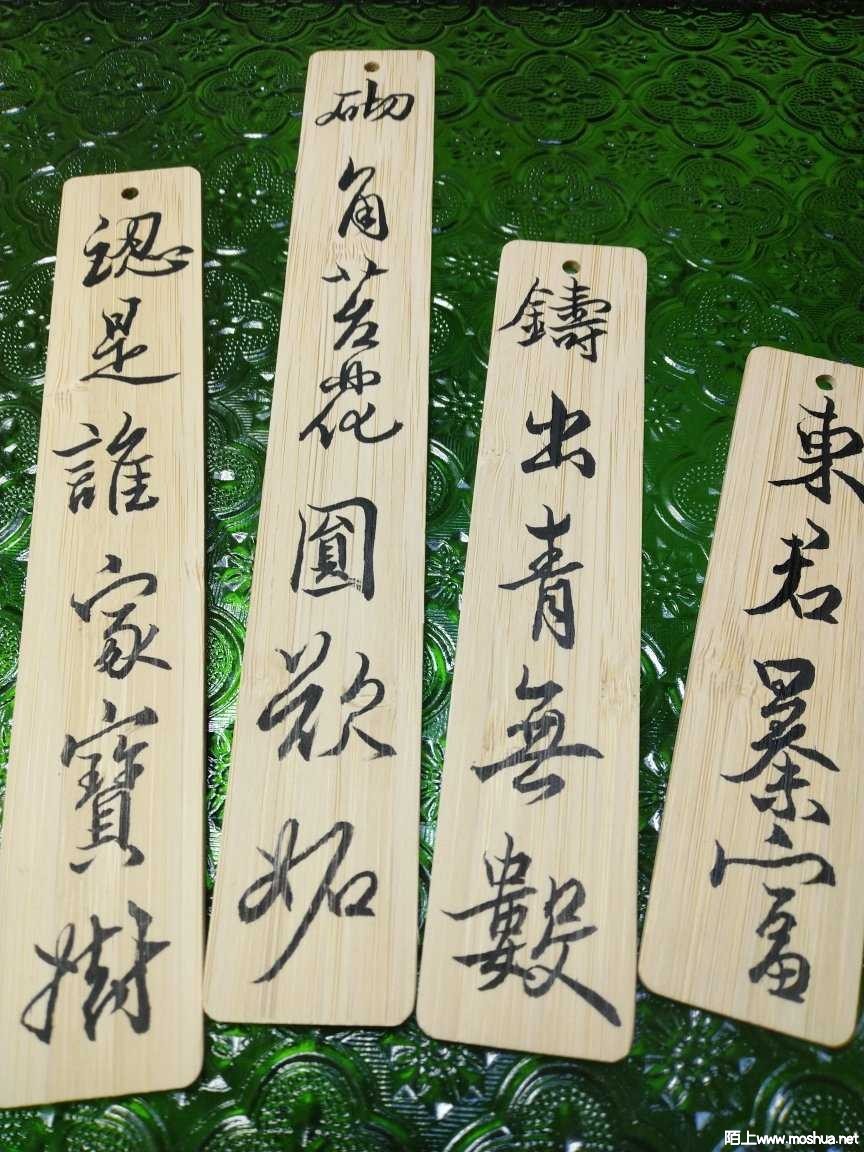 東君暴富
鑄出青無數
砌角苔花圓欲妬
認是誰家寶樹
陌上www.moshua.net